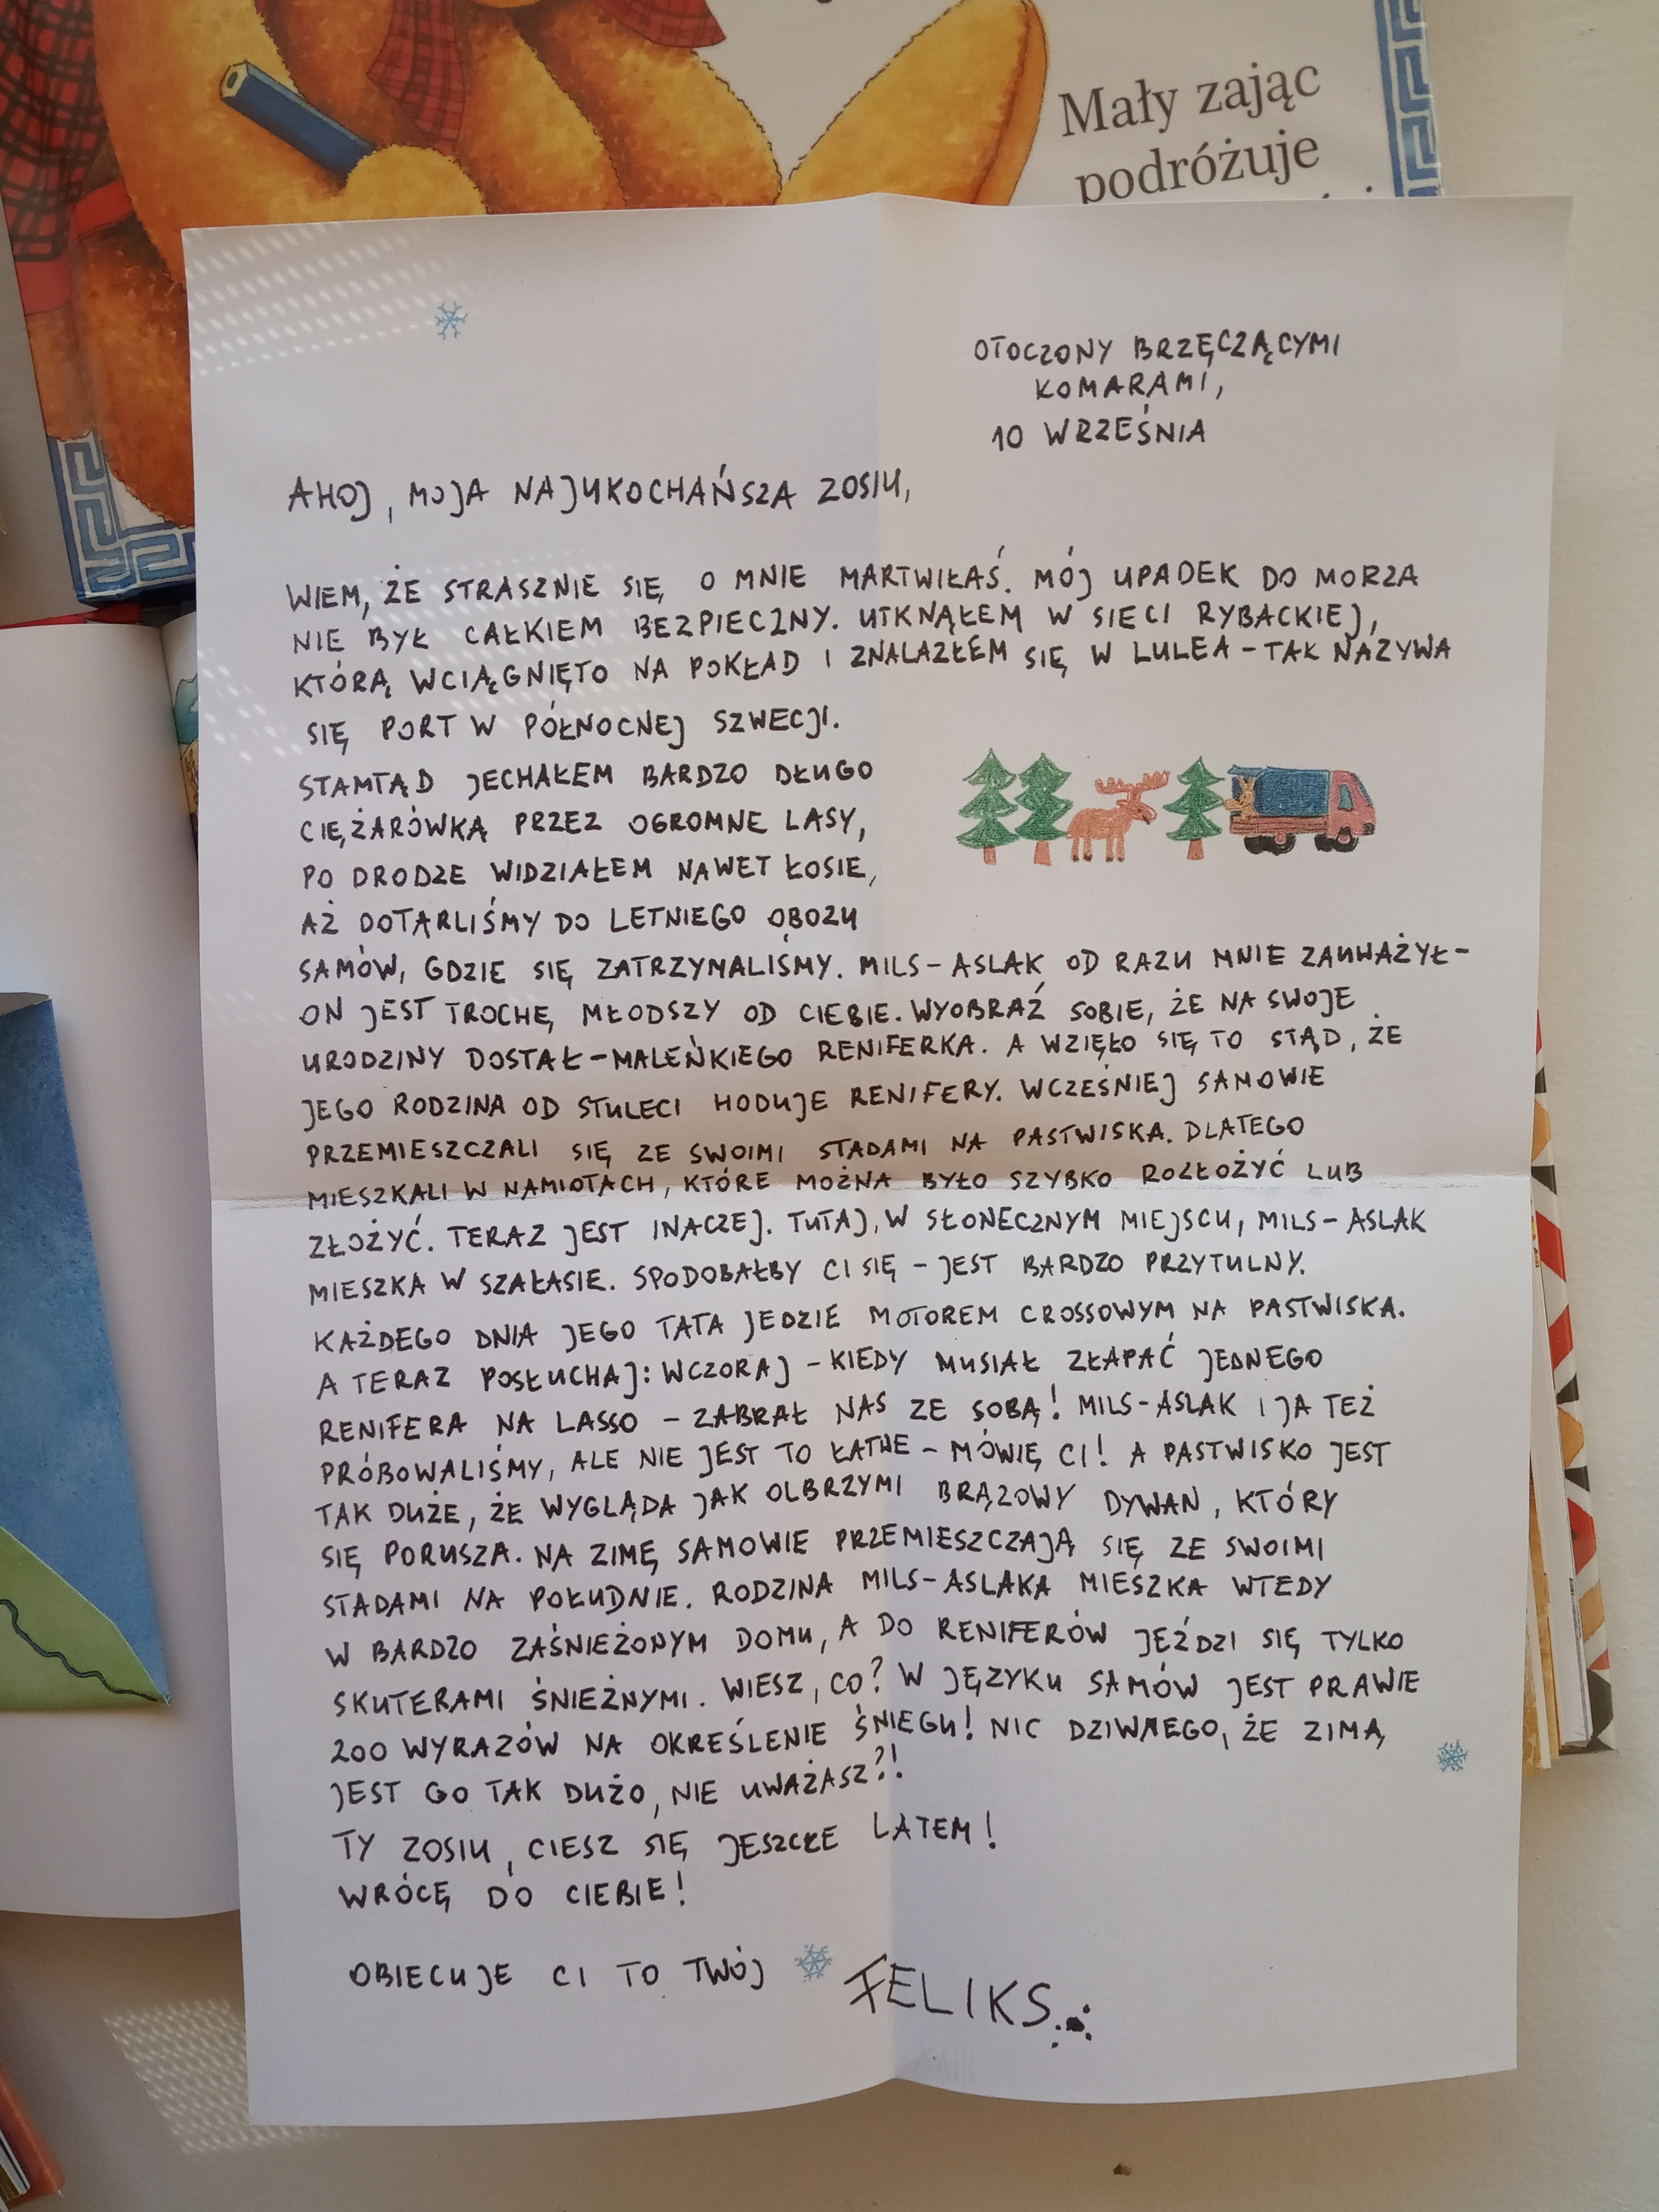 Mały zając
podróżuje
OTOCZONY BRZĘCZĄCYMI
KOMARAMI,
10 WRZEŚNIA
AHOJ, MOJA NAJUKOCHAŃSZA ZOSIU,
WIEM, ŻE STRASZNIE SIĘ O MNIE MARTWIŁAŚ. MÓJ UPADEK DO MORZA
NIE BYŁ CAŁKIEM BEZPIECZNY. UTKNĄŁEM W SIECI RYBACKIEJ,
KTÓRĄ WCIĄGNIĘTO NA POKŁAD I ZNALAZŁEM SIĘ W LULEA – TAK NAZYWA
SIĘ PORT W PÓŁNOCNEJ SZWECJI.
STAMTĄD JECHAŁEM BARDZO DŁUGO
CIĘŻARÓWKĄ PRZEZ OGROMNE LASY,
PO DRODZE WIDZIAŁEM NAWET ŁOSIE,
AŻ DOTARLIŚMY DO LETNIEGO OBOZU
SAMÓW, GDZIE SIĘ ZATRZYMALIŚMY. MILS-ASLAK OD RAZU MNIE ZAUWAŻYŁ –
ON JEST TROCHĘ MŁODSZY OD CIEBIE. WYOBRAŹ SOBIE, ŻE NA SWOJE
URODZINY DOSTAŁ – MALEŃKIEGO RENIFERKA. A WZIĘŁO SIĘ TO STĄD, ŻE
JEGO RODZINA OD STULECI HODUJE RENIFERY. WCZEŚNIEJ SAMOWIE
PRZEMIESZCZALI SIĘ ZE SWOIMI STADAMI NA PASTWISKA. DLATEGO
MIESZKALI W NAMIOTACH, KTÓRE MOŻNA BYŁO SZYBKO ROZŁOŻYĆ LUB
ZŁOŻYĆ. TERAZ JEST INACZEJ. TUTAJ, W SŁONECZNYM MIEJSCU, MILS-ASLAK
MIESZKA W SZAŁASIE. SPODOBAŁBY CI SIĘ – JEST BARDZO PRZYTULNY.
KAŻDEGO DNIA JEGO TATA JEDZIE MOTOREM CROSSOWYM NA PASTWISKA.
A TERAZ POSŁUCHAJ: WCZORAJ – KIEDY MUSIAŁ ZŁAPAĆ JEDNEGO
RENIFERA NA LASSO – ZABRAŁ NAS ZE SOBĄ! MILS-ASLAK I JA TEŻ
PRÓBOWALIŚMY, ALE NIE JEST TO ŁATWE – MÓWIĘ CI! A PASTWISKO JEST
TAK DUŻE, ŻE WYGLĄDA JAK OLBRZYMI BRĄZOWY DYWAN, KTÓRY
SIĘ PORUSZA. NA ZIMĘ SAMOWIE PRZEMIESZCZAJĄ SIĘ ZE SWOIMI
STADAMI NA POŁUDNIE. RODZINA MILS-ASLAKA MIESZKA WTEDY
W BARDZO ZAŚNIEŻONYM DOMU, A DO RENIFERÓW JEŹDZI SIĘ TYLKO
SKUTERAMI ŚNIEŻNYMI. WIESZ, CO? W JĘZYKU SAMÓW JEST PRAWIE
200 WYRAZÓW NA OKREŚLENIE ŚNIEGU! NIC DZIWNEGO, ŻE ZIMĄ
JEST GO TAK DUŻO, NIE UWAŻASZ?!
TY ZOSIU, CIESZ SIĘ JESZCZE LATEM!
WRÓCĘ DO CIEBIE!
OBIECUJE CI TO TWÓJ FELIKS